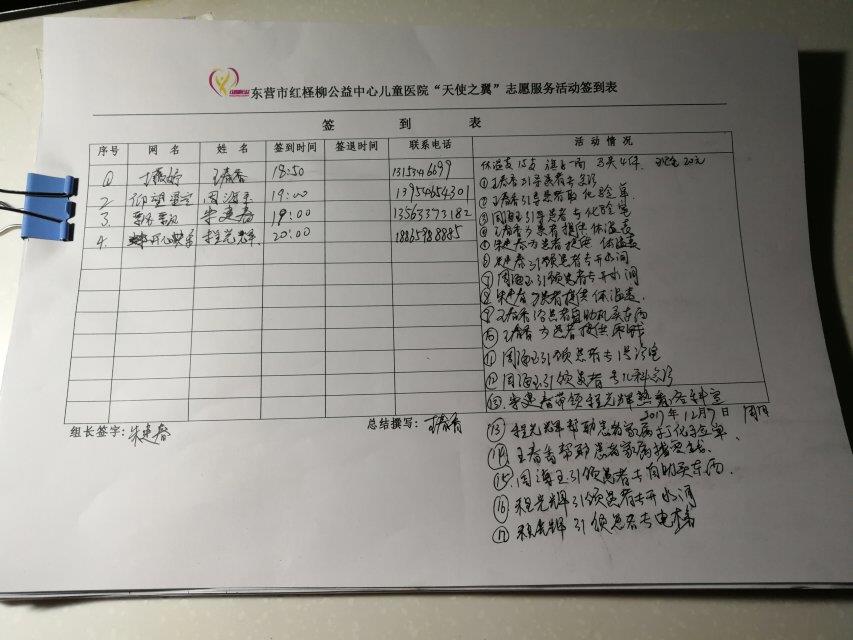 东营市红柽柳公益中心儿童医院“天使之翼”志愿服务活动签到表
签 到 表
序号 网 名 姓 名 签到时间 签退时间 联系电话 活 动 情 况
① 丁薇好 王春香 18:50
2 周海玉 19:00 13954654301
3. 朱建春 19:00 13563373182
4. 程光辉 20:00 18865988885
体温表15支
①王春香引导患者去急诊
②王春香引导患者取化验单
③周海玉引导患者去化验室
④王春香为患者提供体温表
⑤朱建春为患者提供体温表
⑥朱建春引领患者去开水间
⑦周海玉引领患者去开水间
⑧朱建春为患者提供体温表.
⑨王春香给患者自助机买东西
⑩王春香为患者提供
⑪周海玉引领患者去1号诊室
⑫周海玉引领患者去儿科急诊
朱建春带领程光辉熟悉各科室
2017年12月7日
组长签字:朱建春 总结撰写:王春香
⑬程光辉帮助患者家属打化验单、
⑭王春香帮助患者家属
⑮周海玉引领患者去自助买东西.
⑯程光辉引领患者去开水间
⑰程光辉引领患者去电梯